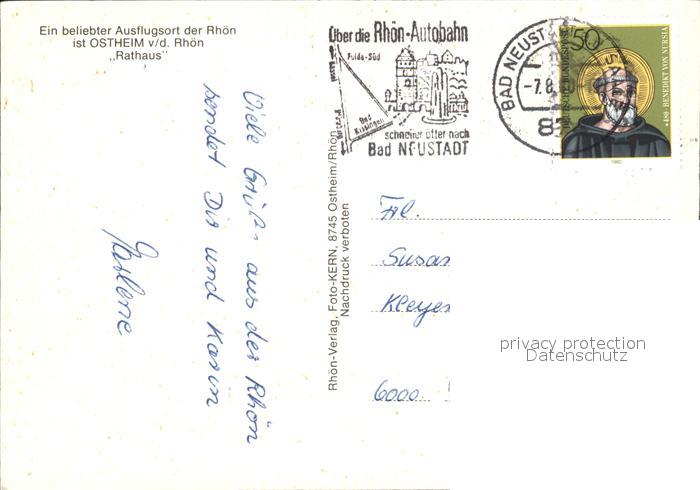 Ein beliebter Ausflugsort der Rhön
ist OSTHEIM v/d. Rhön
„Rathaus"
Viele Grüße aus der Rhön
sendet Dir und Karin
Marlene
Rhön-Verlag, Foto-KERN, 8745 Ostheim/Rhön
Nachdruck verboten
Über die Rhön-Autobahn
Fulda-Süd
Bad
Kissingen
schneller öfter nach
Bad NEUSTADT
BAD NEUST
-7.8.
50
DEUTSCHE BUNDESPOST
*480 BENEDIKT VON NURSIA
1980
Frl.
Susan
Kleyer
6000
privacy protection
Datenschutz